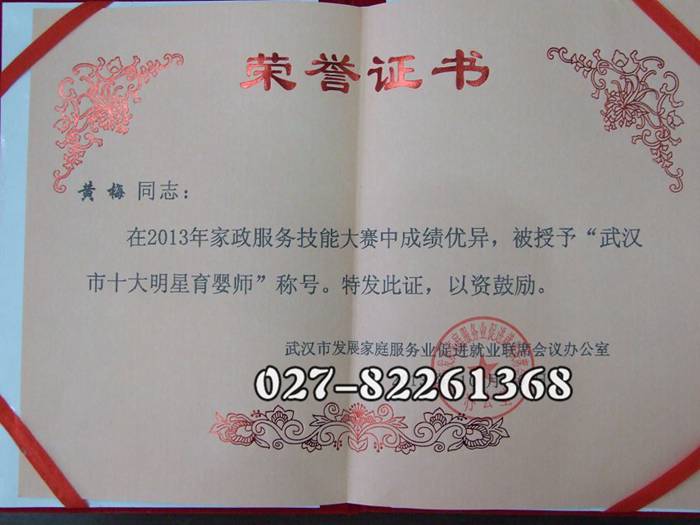 荣誉证书
黄梅 同志：
在2013年家政服务技能大赛中成绩优异，被授予“武汉
市十大明星育婴师”称号。特发此证，以资鼓励。
武汉市发展家庭服务业促进就业联席会议办公室
027-82261368